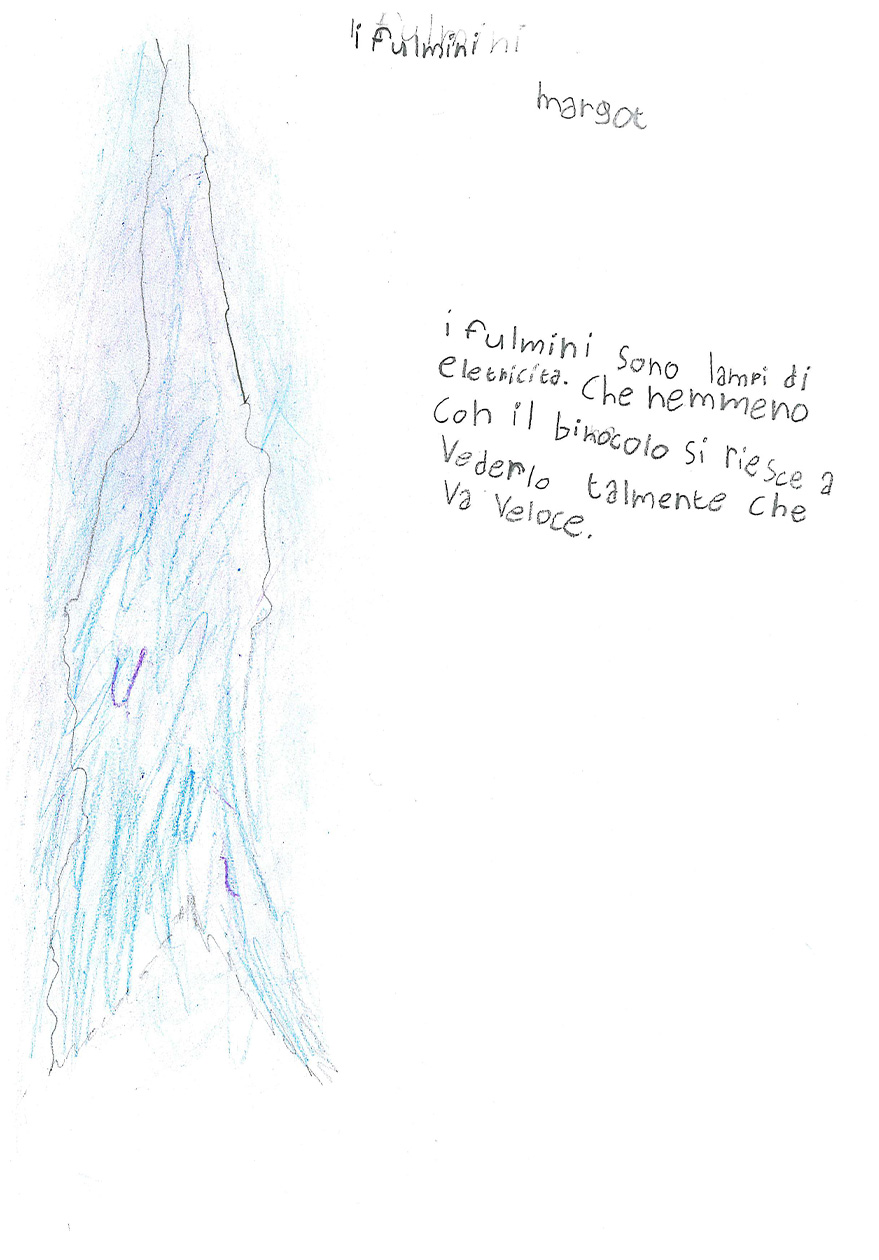 i fulmini
margot
i fulmini sono lampi di
eletricita. Che nemmeno
con il binocolo si riesce a
Vederlo talmente che
Va Veloce.